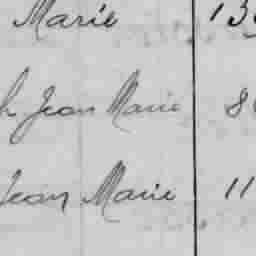 Marie 13
h Jean Marie 8
Jean Marie 11